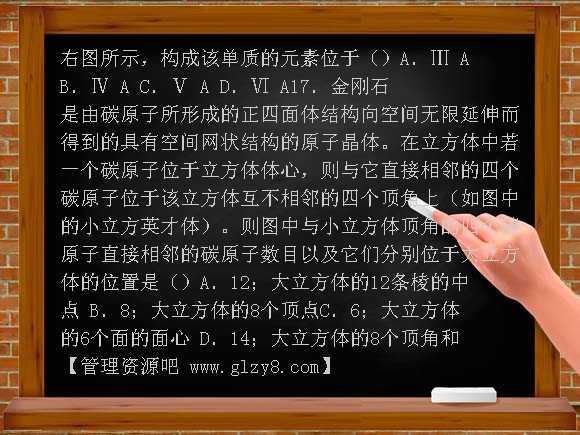 右图所示，构成该单质的元素位于（）A．Ⅲ A
B．Ⅳ A C．Ⅴ A D．Ⅵ A17．金刚石
是由碳原子所形成的正四面体结构向空间无限延伸而
得到的具有空间网状结构的原子晶体。在立方体中若
一个碳原子位于立方体体心，则与它直接相邻的四个
碳原子位于该立方体互不相邻的四个顶角上（如图中
的小立方英才体）。则图中与小立方体顶角的
原子直接相邻的碳原子数目以及它们分别位于大立方
体的位置是（）A．12；大立方体的12条棱的中
点 B．8；大立方体的8个顶点C．6；大立方体
的6个面的面心 D．14；大立方体的8个顶角和
【管理资源吧 www.glzy8.com】